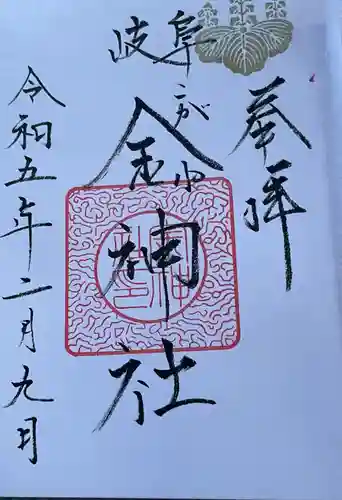 奉拝
岐阜
こがね
金神社
令和五年二月九日